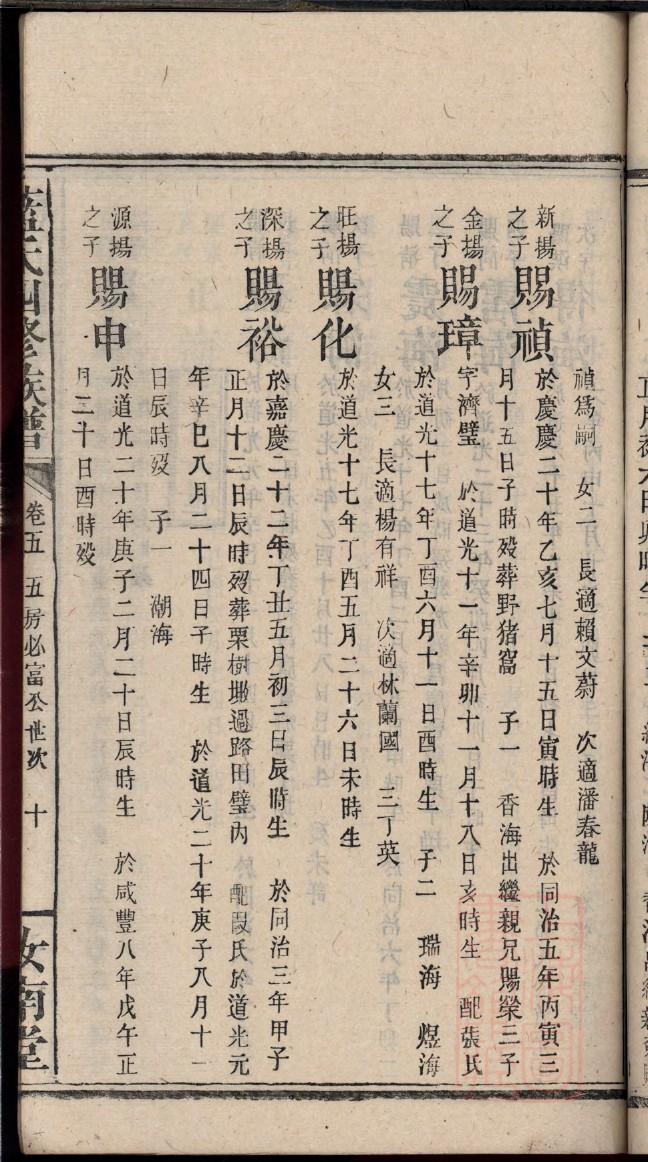 禎爲嗣 女二 長適賴文蔚 次適潘春龍
新揚之子 賜禎 於慶慶二十年乙亥七月十五日寅時生 於同治五年丙寅三
月十五日子時殁葬野猪窩 子一 香海出繼親兄賜榮三子
金揚之子 賜璋 字濟璧 於道光十一年辛卯十一月十八日亥時生 配張氏
於道光十七年丁酉六月十一日酉時生 子二 瑞海 煜海
女三 長適楊有祥 次適林蘭國 三丁英
旺揚之子 賜化 於道光十七年丁酉五月二十六日未時生
深揚之子 賜裕 於嘉慶二十二年丁丑五月初三日辰時生 於同治三年甲子
正月十二日辰時殁葬栗樹塝過路田璧内 配段氏於道光元
年辛巳八月二十四日子時生 於道光二十年庚子八月十一
日辰時殁 子一 潮海
源揚之子 賜申 於道光二十年庚子二月二十日辰時生 於咸豐八年戊午正
月二十日酉時殁
藍氏四修族譜 卷五 五房必富公世次 十 汝南堂